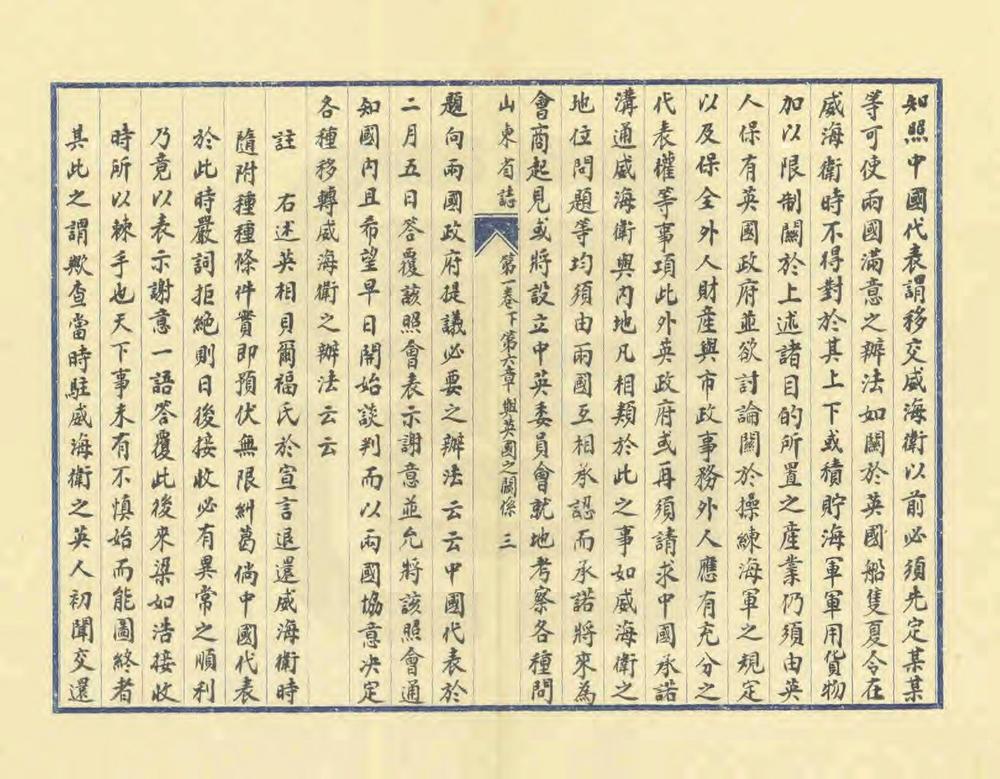 知照中國代表謂移交威海衛以前必須先定某某
等可使兩國滿意之辦法如關於英國船隻夏令在
威海衛時不得對於其上下或積貯海軍軍用貨物
加以限制關於上述諸目的所置之産業仍須由英
人保有英國政府並欲討論關於操練海軍之規定
以及保全外人財産與市政事務外人應有充分之
代表權等事項此外英政府或再須請求中國承諾
溝通威海衛與內地凡相類於此之事如威海衛之
地位問題等均須由兩國互相承認而承諾將來為
會商起見或將設立中英委員會就地考察各種問
山東省誌 第一卷下第六章 與英國之關係 三
題向兩國政府提議必要之辦法云云中國代表於
二月五日答覆該照會表示謝意並允將該照會通
知國內且希望早日開始談判而以兩國協意決定
各種移轉威海衛之辦法云云
註 右述英相貝爾福氏於宣言退還威海衛時
隨附種種條件實即預伏無限糾葛倘中國代表
於此時嚴詞拒絕則日後接收必有異常之順利
乃竟以表示謝意一語答覆此後來梁如浩接收
時所以棘手也天下事未有不慎始而能圖終者
其此之謂歟查當時駐威海衛之英人初聞交還